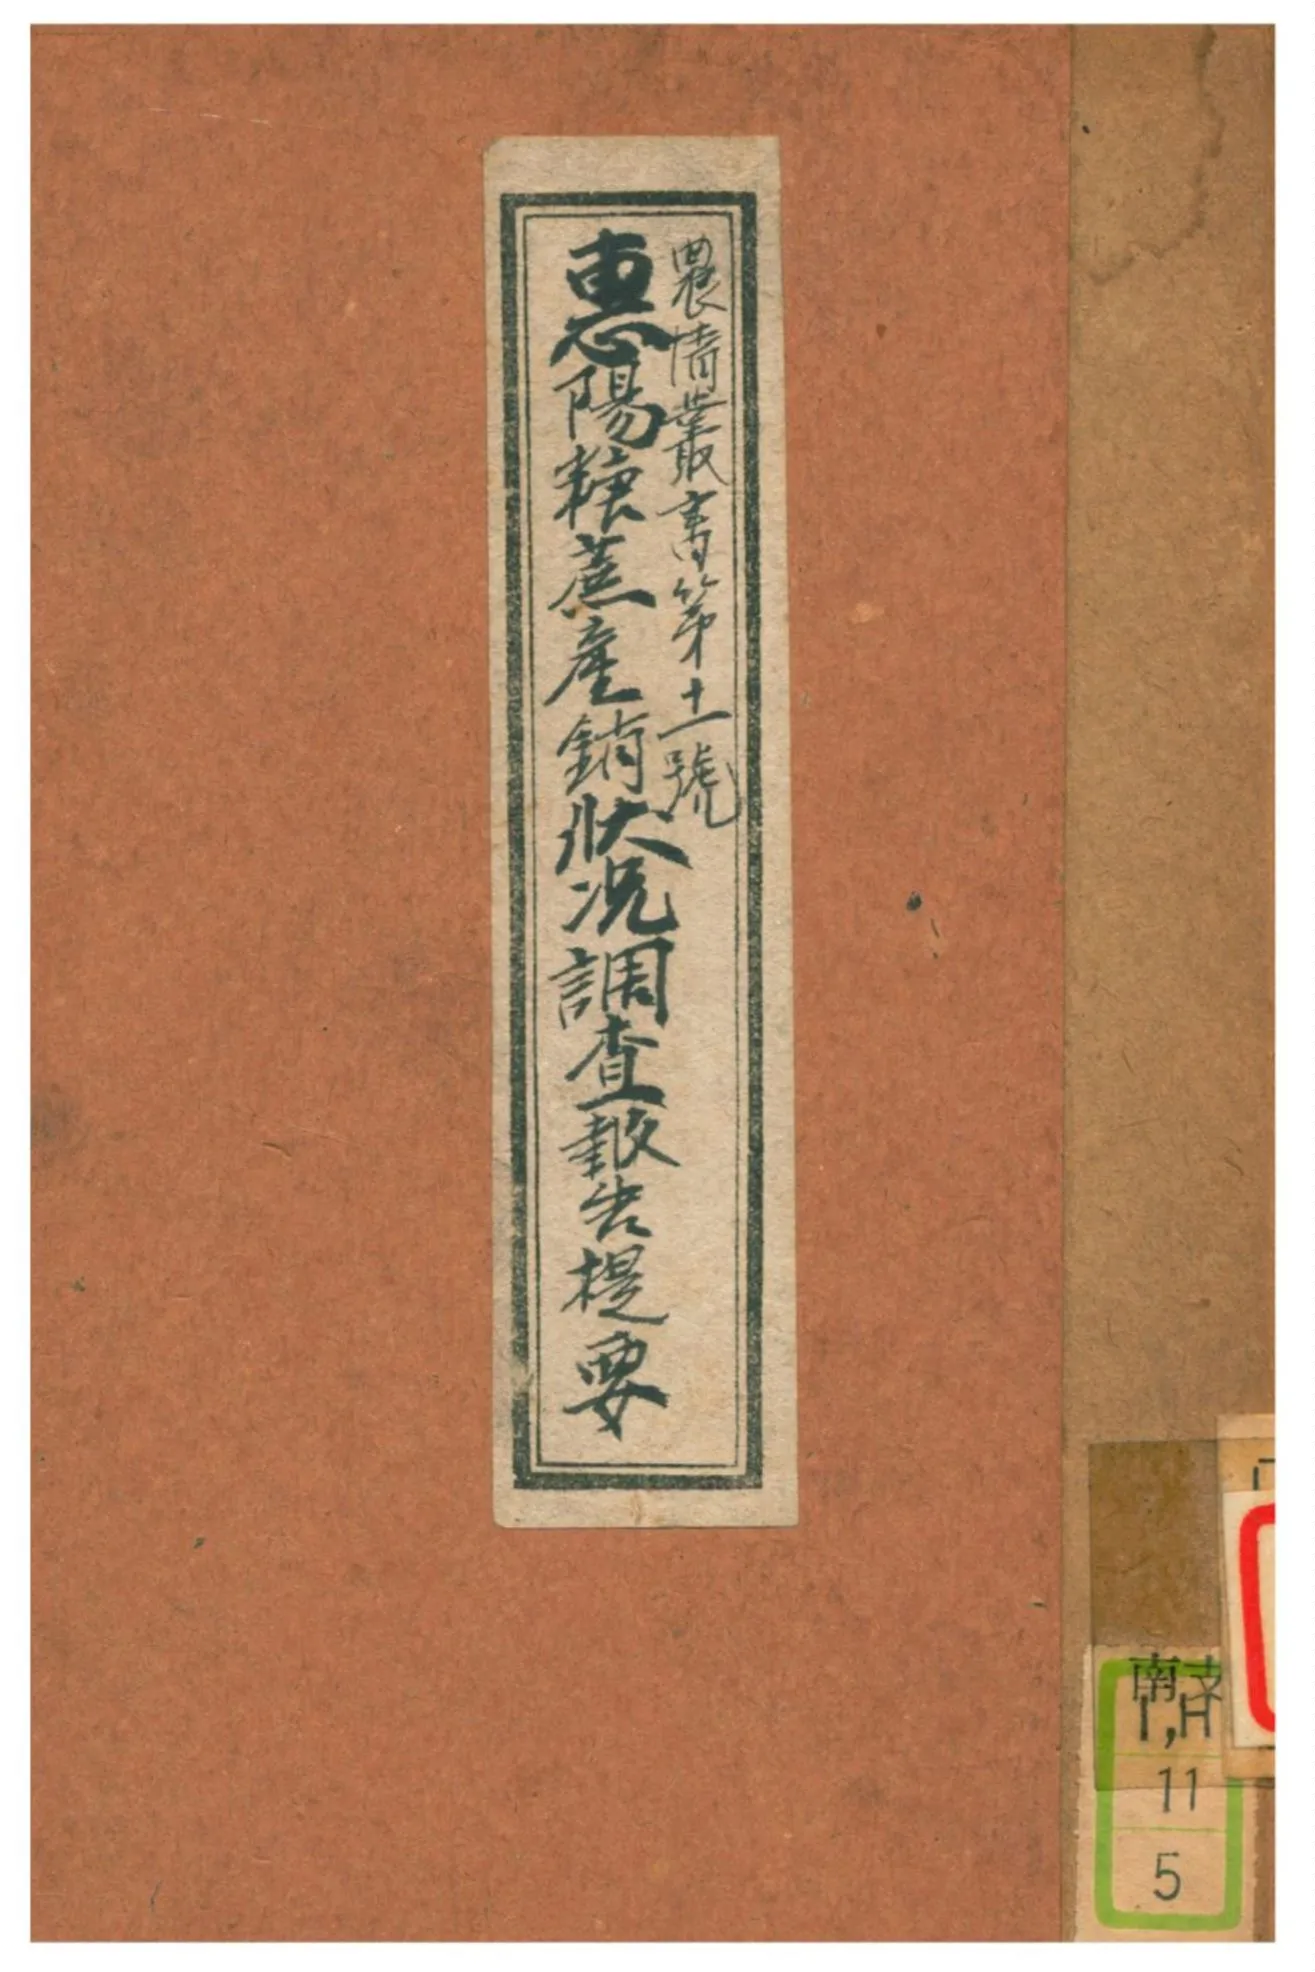 農情叢書第十一號
惠陽糖蔗產銷狀況調查報告提要
南支
I,H
11
5